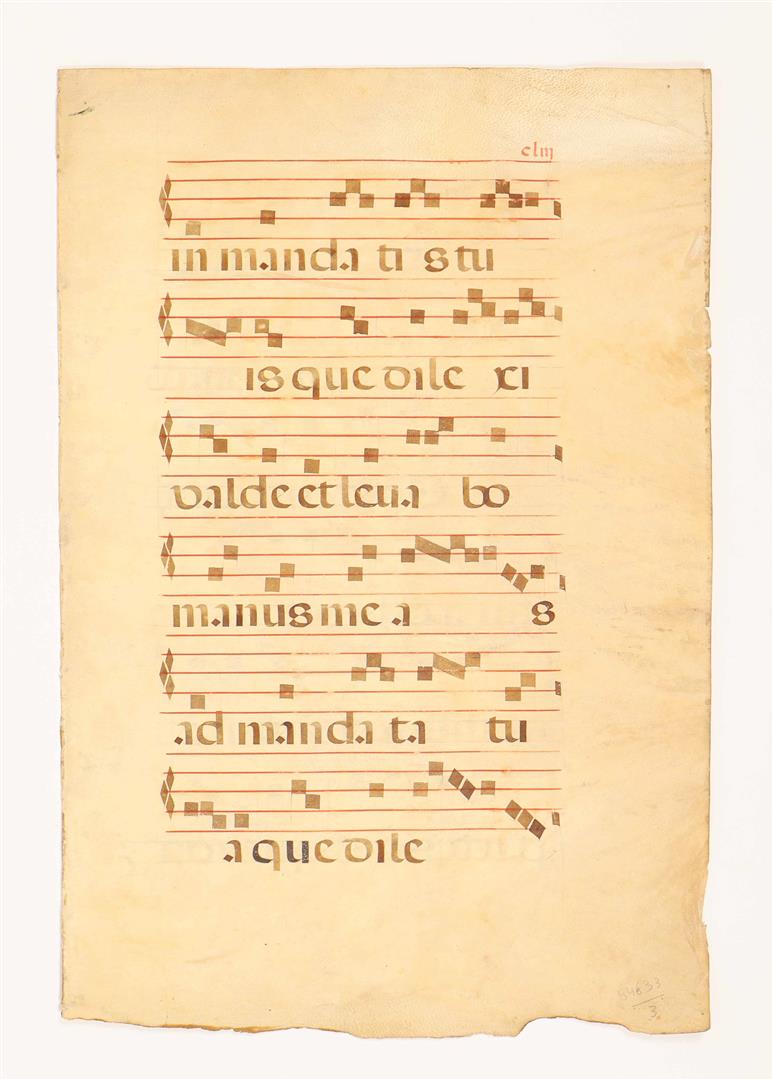 clııȷ
in manda ti s tu
is que dile xi
valde et leua bo
manus me a s
ad manda ta tu
a que dile
54633
3.